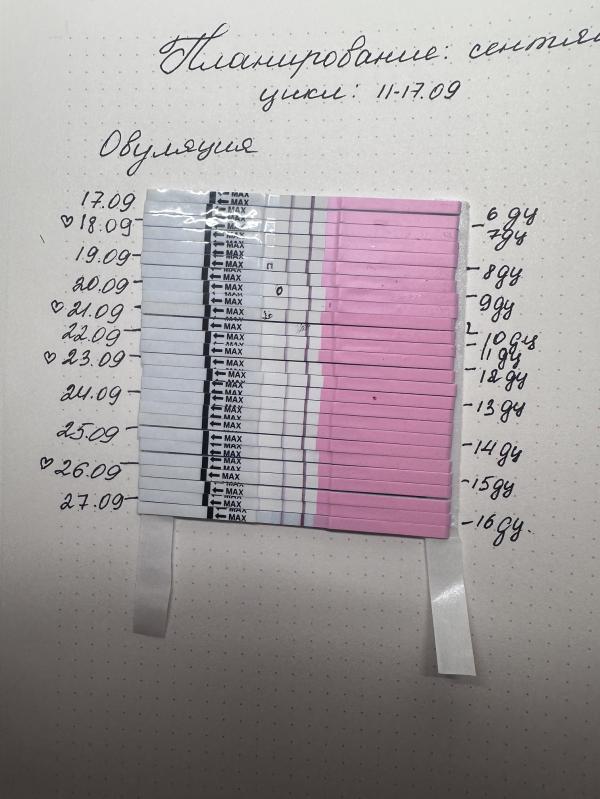 Планирование:
цикл: 11-17.09
Овуляция
17.09
♡18.09
19.09
20.09
♡21.09
22.09
♡23.09
24.09
25.09
♡26.09
27.09
MAX
MAX
MAX
MAX
MAX
MAX
MAX
MAX
MAX
MAX
MAX
MAX
MAX
MAX
MAX
MAX
MAX
MAX
MAX
MAX
MAX
MAX
MAX
MAX
MAX
MAX
6 дц
7дц
8дц
9дц
10дц
11дц
12дц
13дц
14дц
15дц
16дц